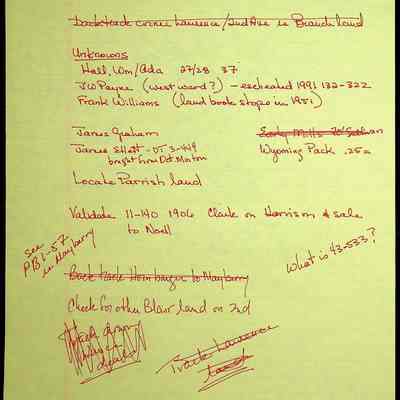 backtrack corner Lawrence/2nd Ave is Branch land
Unknowns
Hall, Wm/Ada 27/28 37
JW Payne (west ward?) - escheated 1991 132-322
Frank Williams (land book stops in 1951)
James Graham
James Ellett - DT 3-449
bought from D.A. Morton
Wyoming Pack .25a
Locate Parrish land
Validate 11-140 1906 Clark on Harrison & sale
to Noell
see
PB1-57
in Mayberry
What is 43-533?
Back track Hornbarger to Mayberry
Check for other Blair land on 2nd
Track down
Track Lawrence